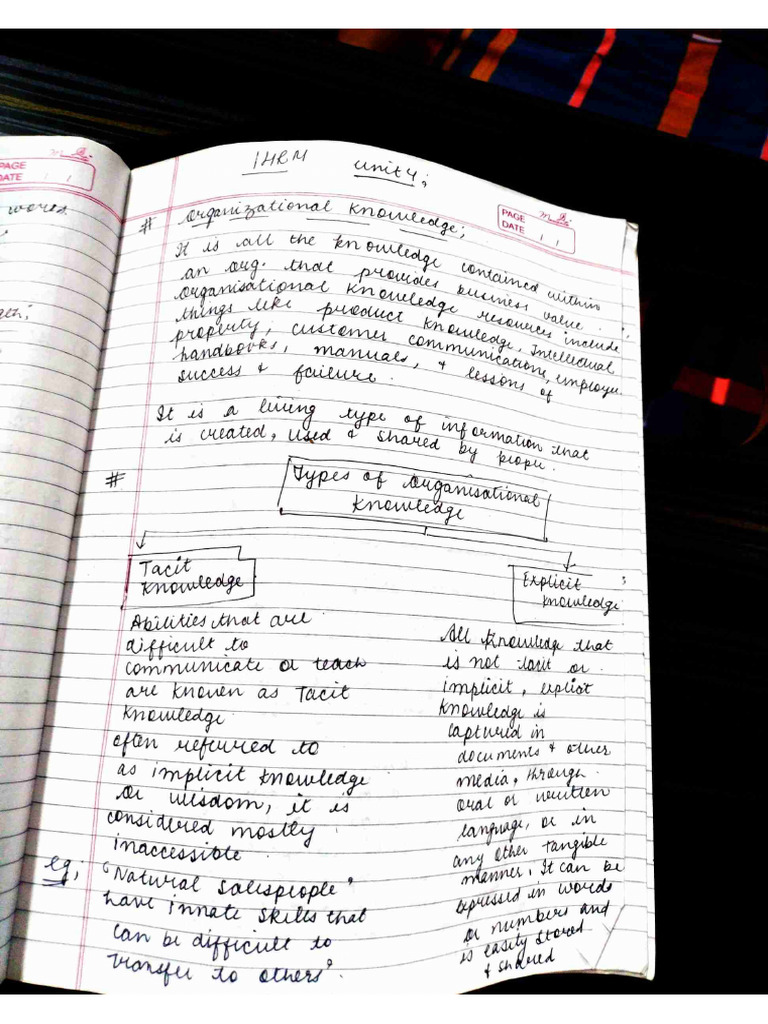 PAGE
DATE
IHRM unit 4;
PAGE
DATE
# Organizational Knowledge;
It is all the knowledge contained within
an org. that provides business value.
Organisational knowledge resources include
things like product knowledge, Intellectual
property, customer communication, employee
handbooks, manuals, & lessons of
success & failure.
It is a living type of information that
is created, used & shared by people.
# Types of Organisational
Knowledge
Tacit
Knowledge
Abilities that are
difficult to
communicate or teach
are known as Tacit
Knowledge.
often referred to
as implicit knowledge
or wisdom, it is
considered mostly
inaccessible.
eg; "Natural salespeople"
have innate skills that
can be difficult to
transfer to others".
Explicit
knowledge
All knowledge that
is not tacit or
implicit, explicit
knowledge is
captured in
documents & other
media, through
oral or written
language, or in
any other tangible
manner, It can be
expressed in words
or numbers and
is easily stored
& shared